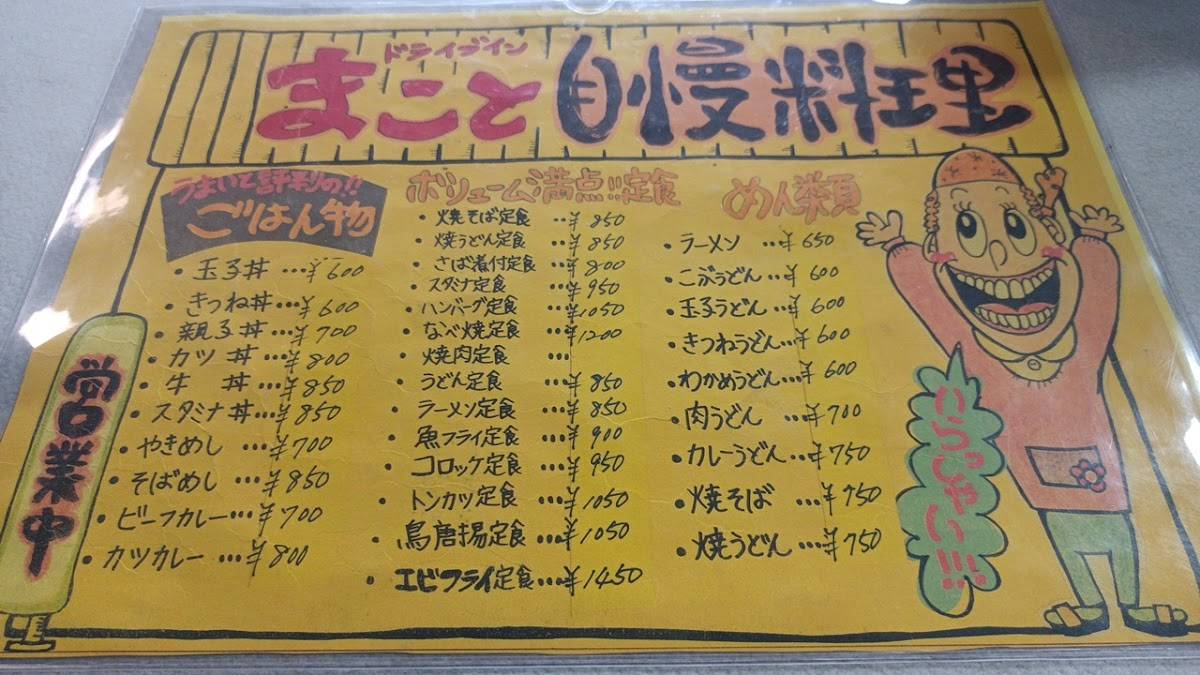 ドライブイン
まこと 自慢料理
うまいと評判の!!
ごはん物
・玉子丼…¥600
・きつね丼…¥600
・親子丼…¥700
・カツ丼…¥800
・牛 丼…¥850
・スタミナ丼…¥850
・やきめし…¥700
・そばめし…¥850
・ビーフカレー…¥700
・カツカレー…¥800
ボリューム満点!!定食
・焼そば定食…¥850
・焼うどん定食…¥850
・さば煮付定食…¥800
・スタミナ定食…¥950
・ハンバーグ定食…¥1050
・なべ焼定食…¥1200
・焼肉定食…
・うどん定食…¥850
・ラーメン定食…¥850
・魚フライ定食…¥900
・コロッケ定食…¥950
・トンカツ定食…¥1050
・鳥唐揚定食…¥1050
・エビフライ定食…¥1450
めん類
・ラーメン…¥650
・こぶうどん…¥600
・玉子うどん…¥600
・きつねうどん…¥600
・わかめうどん…¥600
・肉うどん…¥700
・カレーうどん…¥750
・焼そば…¥750
・焼うどん…¥750
営業中
いらっしゃい!!!